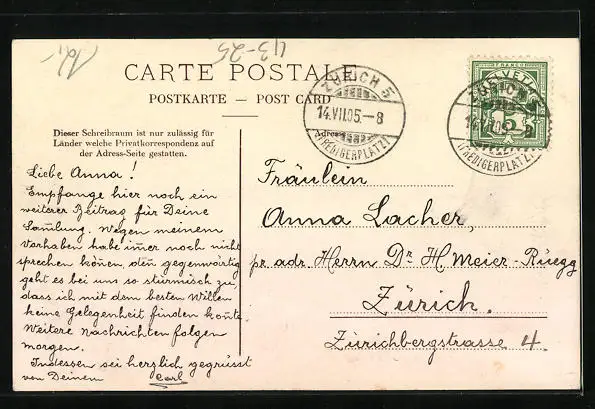 113-25
CARTE POSTALE
POSTKARTE — POST CARD
Dieser Schreibraum ist nur zulässig für
Länder welche Privatkorrespondenz auf
der Adress-Seite gestatten.
Liebe Anna!
Empfange hier noch ein
weiterer Beitrag für Deine
Samlung. Wegen meinem
Vorhaben habe imer noch nicht
sprechen könen, den gegenwärtig
geht es bei uns so stürmisch zu,
dass ich mit dem besten Willen
keine Gelegenheit finden konte.
Weitere Nachrichten folgen
morgen.
Indessen sei herzlich gegrüsst
von Deinem Carl
ZÜRICH 5
14.VII.05.-8
(FREDIGERPLATZ)
HELVETIA
FRANCO
5
ZÜRICH 5
14.VII.05.-8
(PREDIGERPLATZ)
Adresse
Fräulein
Anna Lacher,
pr. adr. Herrn Dr. H. Meier-Rüegg
Zürich.
Zürichbergstrasse 4.